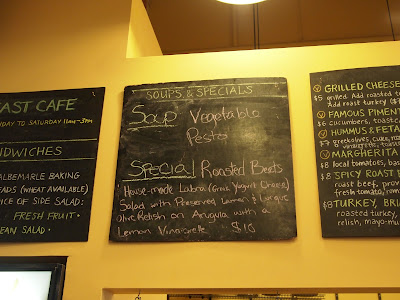 AST CAFE
DAY TO SATURDAY 11am-3pm
NDWICHES
ALBEMARLE BAKING
EADS (WHEAT AVAILABLE)
ICE OF SIDE SALAD:
FRESH FRUIT •
EAN SALAD •
SOUPS & SPECIALS
Soup Vegetable
Pesto
Special Roasted Beets
House-made Labna (Greek Yogurt Cheese)
Salad with Preserved Lemon & Lucque
olive Relish on Arugula with a
Lemon Vinaigrette $10
GRILLED CHEESE
$5 grilled. Add roasted to
Add roast turkey ($
FAMOUS PIMENT
$6 cucumbers, toasted
HUMMUS & FETA
$7 greek olives, cukes, roas
MARGHERITA
$8 local tomatoes, bas
$8 SPICY ROAST B
roast beef, prov
fresh tomato, rom
$8 TURKEY, BRI
roasted turkey,
relish, mayo-mu